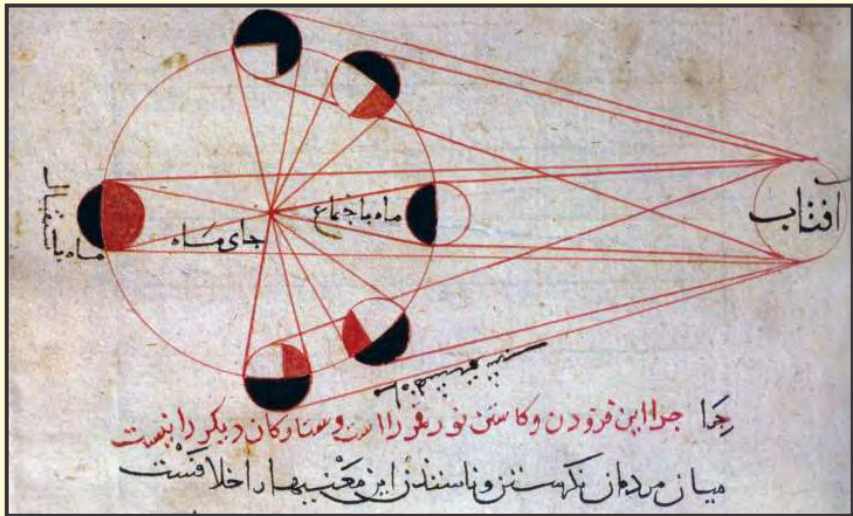 آفتاب
ماه باجتماع
جای ماه
ماه باستقبال
چرا چرا این فزودن و کاستن نور قمر را است و ستارگان دیگر را نیست
میان مردمان نگرستن و ناسنندن این معنیها را اختلافست